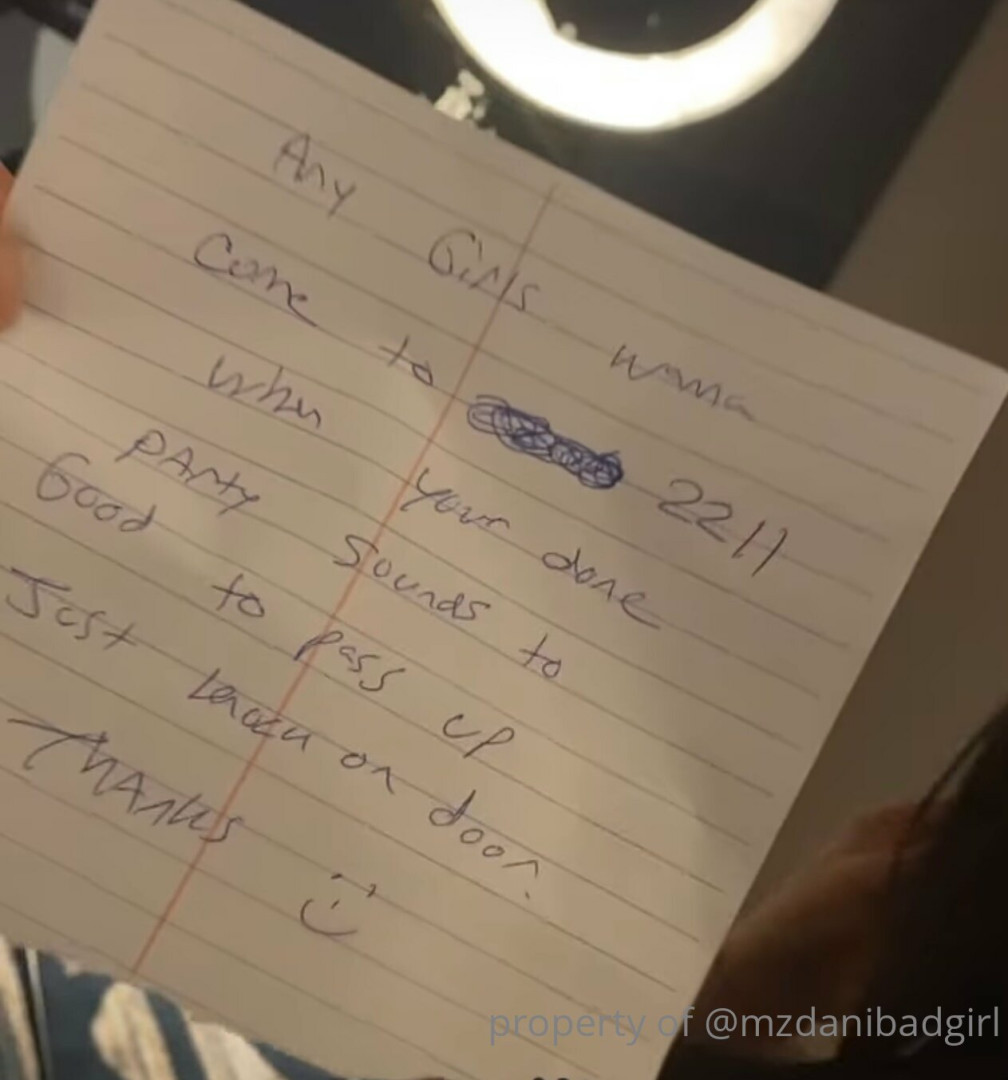 Any Girls wanna
Come to 2211
when your done
pArty Sounds to
Good to pass up
Just on door.
ThAnks :)
property of @mzdanibadgirl